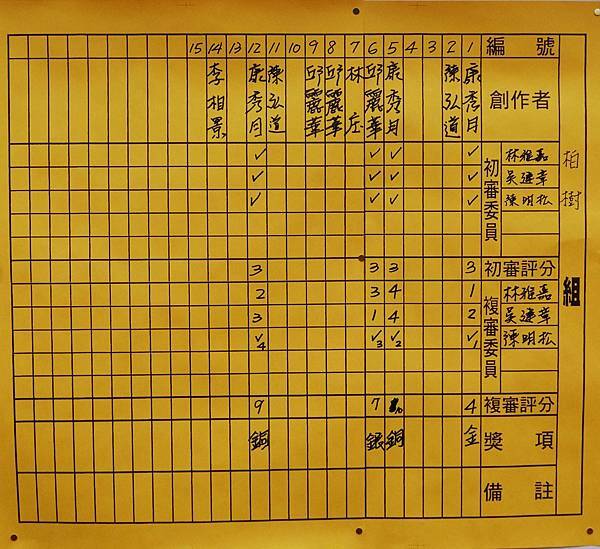 柏樹組
編號 1 2 3 4 5 6 7 8 9 10 11 12 13 14 15
創作者 康秀月 陳弘道 康秀月 邱麗華 林庄 邱麗華 邱麗華 陳弘道 康秀月 李相景
初審委員
林雅嘉 ✓ ✓ ✓ ✓
吳遊章 ✓ ✓ ✓ ✓
陳明松 ✓ ✓ ✓ ✓
初審評分 3 3 3 3
複審委員
林雅嘉 1 4 3 2
吳遊章 2 4 1 3
陳明松 ✓1 ✓2 ✓3 ✓4
複審評分 4 7 9
獎項 金 銅 銀 銅
備註